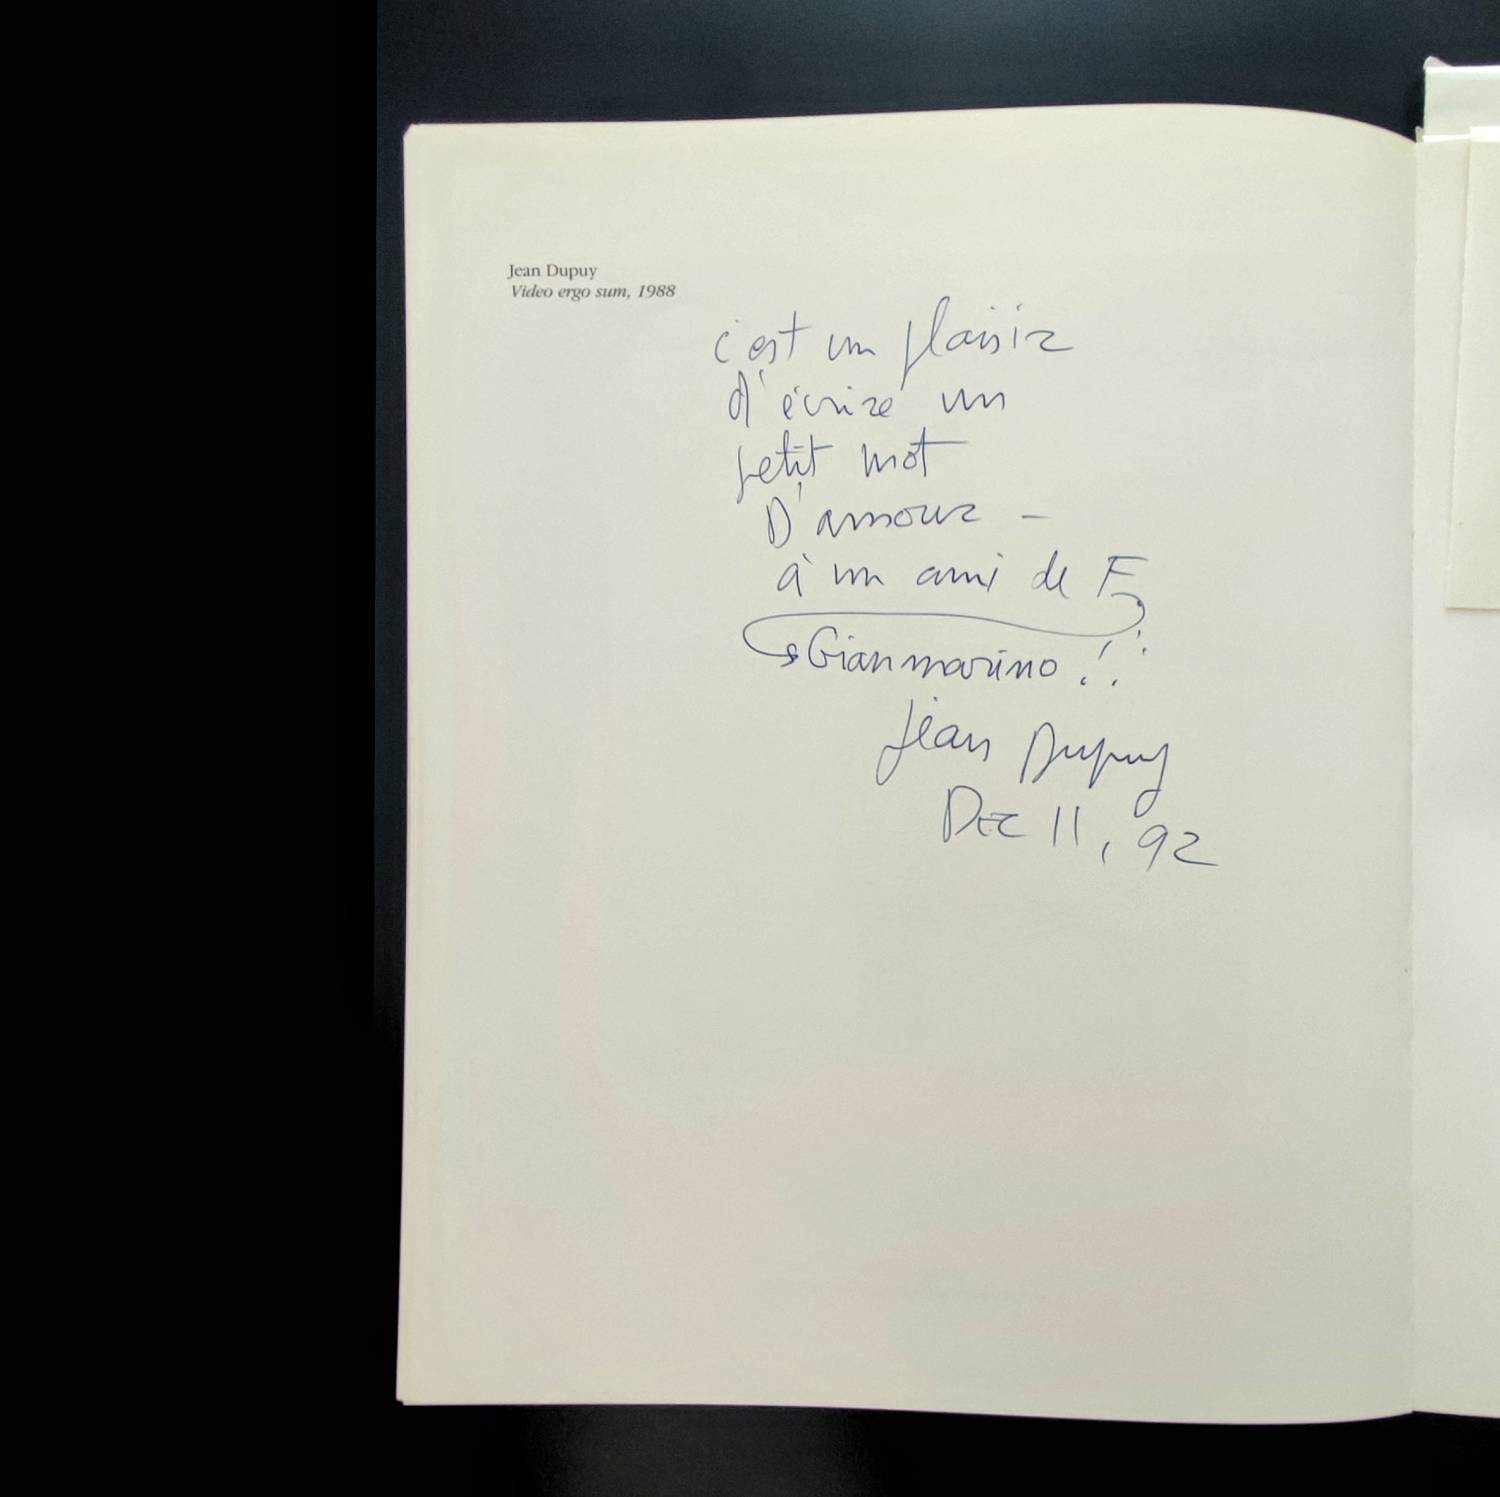 Jean Dupuy
Video ergo sum, 1988
c'est un plaisir
d'écrire un
petit mot
D'amour –
à un ami de F
Gianmarino !!
Jean Dupuy
DEC 11, 92